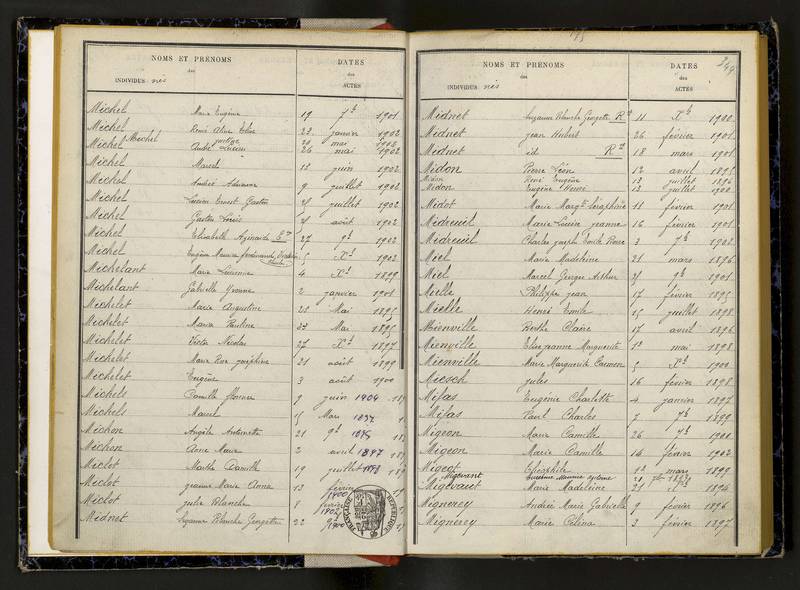 NOMS ET PRÉNOMS
des
INDIVIDUS nés
DATES
des
ACTES
Michel Marie Eugène 19 7b 1901
Michel René Aline 23 janvier 1902
Michel 20 mai 1902
Michel André Lucien 26 mai 1902
Michel Marcel 13 juin 1902
Michel André Adrienne 9 juillet 1902
Michel Lucien Ernest Gaston 25 juillet 1902
Michel Gaston Louis août 1902
Michel Elisabeth 27 9b 1902
Michel Eugène Maurice ferdinand 5 Xb 1902
Michelant Marie Lucienne 4 Xb 1899
Michelant Gabrielle Yvonne 2 janvier 1901
Michelet Marie Augustine 22 Mai 1895
Michelet Maria Pauline 23 Mai 1895
Michelet Victor Nicolas 27 Xb 1897
Michelet Marie Rose joséphine 21 août 1899
Michelet Eugène 3 août 1900
Michels Camille 9 juin 1904
Michels Marcel 15 Mars 1897
Michon Angèle Antoinette 21 9b 1895
Michon Anne Marie 2 avril 1897
Miclot Marthe Camille 19 juillet 1898
Miclot jeanne Marie Anna 13 février 1900
Miclot julia Blanche 8 février 1902
Midnet Suzanne Blanche Georgette 22 9b 1900
175
NOMS ET PRÉNOMS
des
INDIVIDUS nés
DATES
des
ACTES
Midnet Suzanne Blanche Georgette Rt 11 Xb 1900
Midnet jean Hubert 26 février 1901
Midnet id. Rt 18 mars 1901
Midon Pierre Léon 12 avril 1895
Midon René Eugène 13 juillet 1896
Midon Eugène Henri 12 juillet 1900
Midot Marie Margte Séraphine 11 février 1901
Midreuil Marie Louise jeanne 16 février 1901
Midreuil Charles joseph Emile Pierre 3 7b 1902
Miel Marie Madeleine 21 mars 1896
Miel Marcel Georges Arthur 21 9b 1901
Mielle Philippe jean 17 février 1895
Mielle Henri Emile 15 juillet 1898
Mienville Berthe Claire 17 avril 1896
Mienville Elise jeanne Marguerite 12 mai 1898
Mienville Marie Marguerite Carmen 5 Xb 1900
Miesch jules 16 février 1898
Mifas Eugénie Charlotte 4 janvier 1897
Mifas Paul Charles 7 7b 1899
Migeon Marie Camille 26 7b 1900
Migeon Marie Camille 16 février 1902
Migeot Théophile 12 mars 1899
Migevant Maurice
Migevant Marie Madeleine 21 Xb 1894
Mignerey Andrée Marie Gabrielle 9 février 1896
Mignerey Marie Célina 3 février 1897